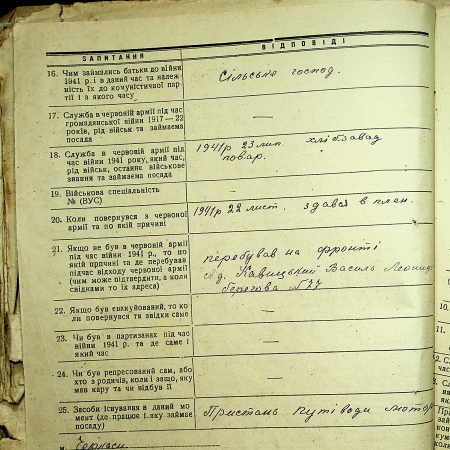 ЗАПИТАННЯ
ВІДПОВІДІ
16. Чим займались батьки до війни
1941 р. і в даний час та належ-
ність їх до комуністичної пар-
тії і з якого часу
Сільськи господ.
17. Служба в червоній армії під час
громадянської війни 1917—22
років, рід військ та займаема
посада
—
18. Служба в червоній армії під
час війни 1941 року, який час,
рід військ, останнє військове
звання та займаема посада
1941р 23 лип. хлібзавад
повар.
19. Військова спеціальність
№ (ВУС)
—
20. Коли повернувся з червоної
армії та по якій причині
1941р 22 лист. здався в плен.
21. Якщо не був в червоній армії
під час війни 1941 р., то по
якій причині та де перебував
підчас відходу червоної армії
(чим може підтвердити, а коли
свідками то їх адреса)
перебував на фронті
Василь Леонид
берегова №77
22. Якщо був евакуйований, то ко-
ли повернувся та звідки саме
—
23. Чи був в партизанах під час
війни 1941 р. та де саме і
який час
—
24. Чи був репресований сам, або
хто з родичів, коли і защо, яку
мав кару та чи відбув її
—
25. Засоби існування в даний мо-
мент (де працює і яку займає
посаду)
Пристань Путі води мотор
м. Черкаси